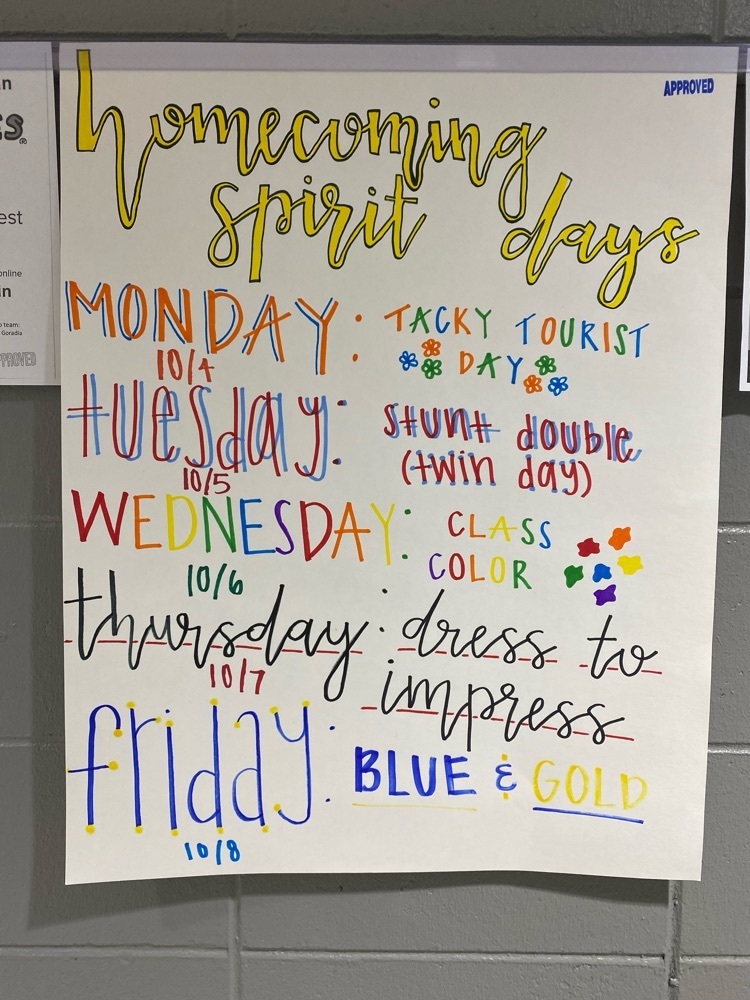 APPROVED
homecoming
spirit days
MONDAY: TACKY TOURIST
10/4 DAY
tuesday: stunt double
10/5 (twin day)
WEDNESDAY: CLASS
10/6 COLOR
thursday: dress to
10/7 impress
friday: BLUE & GOLD
10/8
est
online
in
team:
Goradia
APPROVED